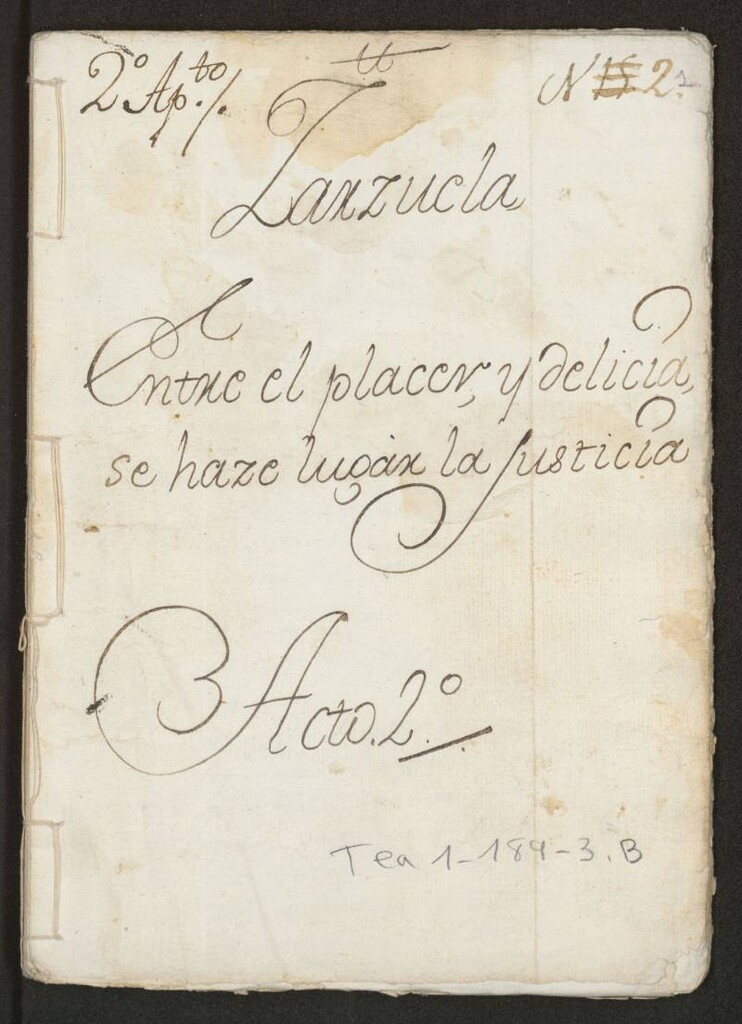 2º Ap.to/.
tt
N 2
Zarzuela
Entre el placer, y delicia,
se haze lugàr la Justicia
Acto. 2º
Tea 1-184-3.B